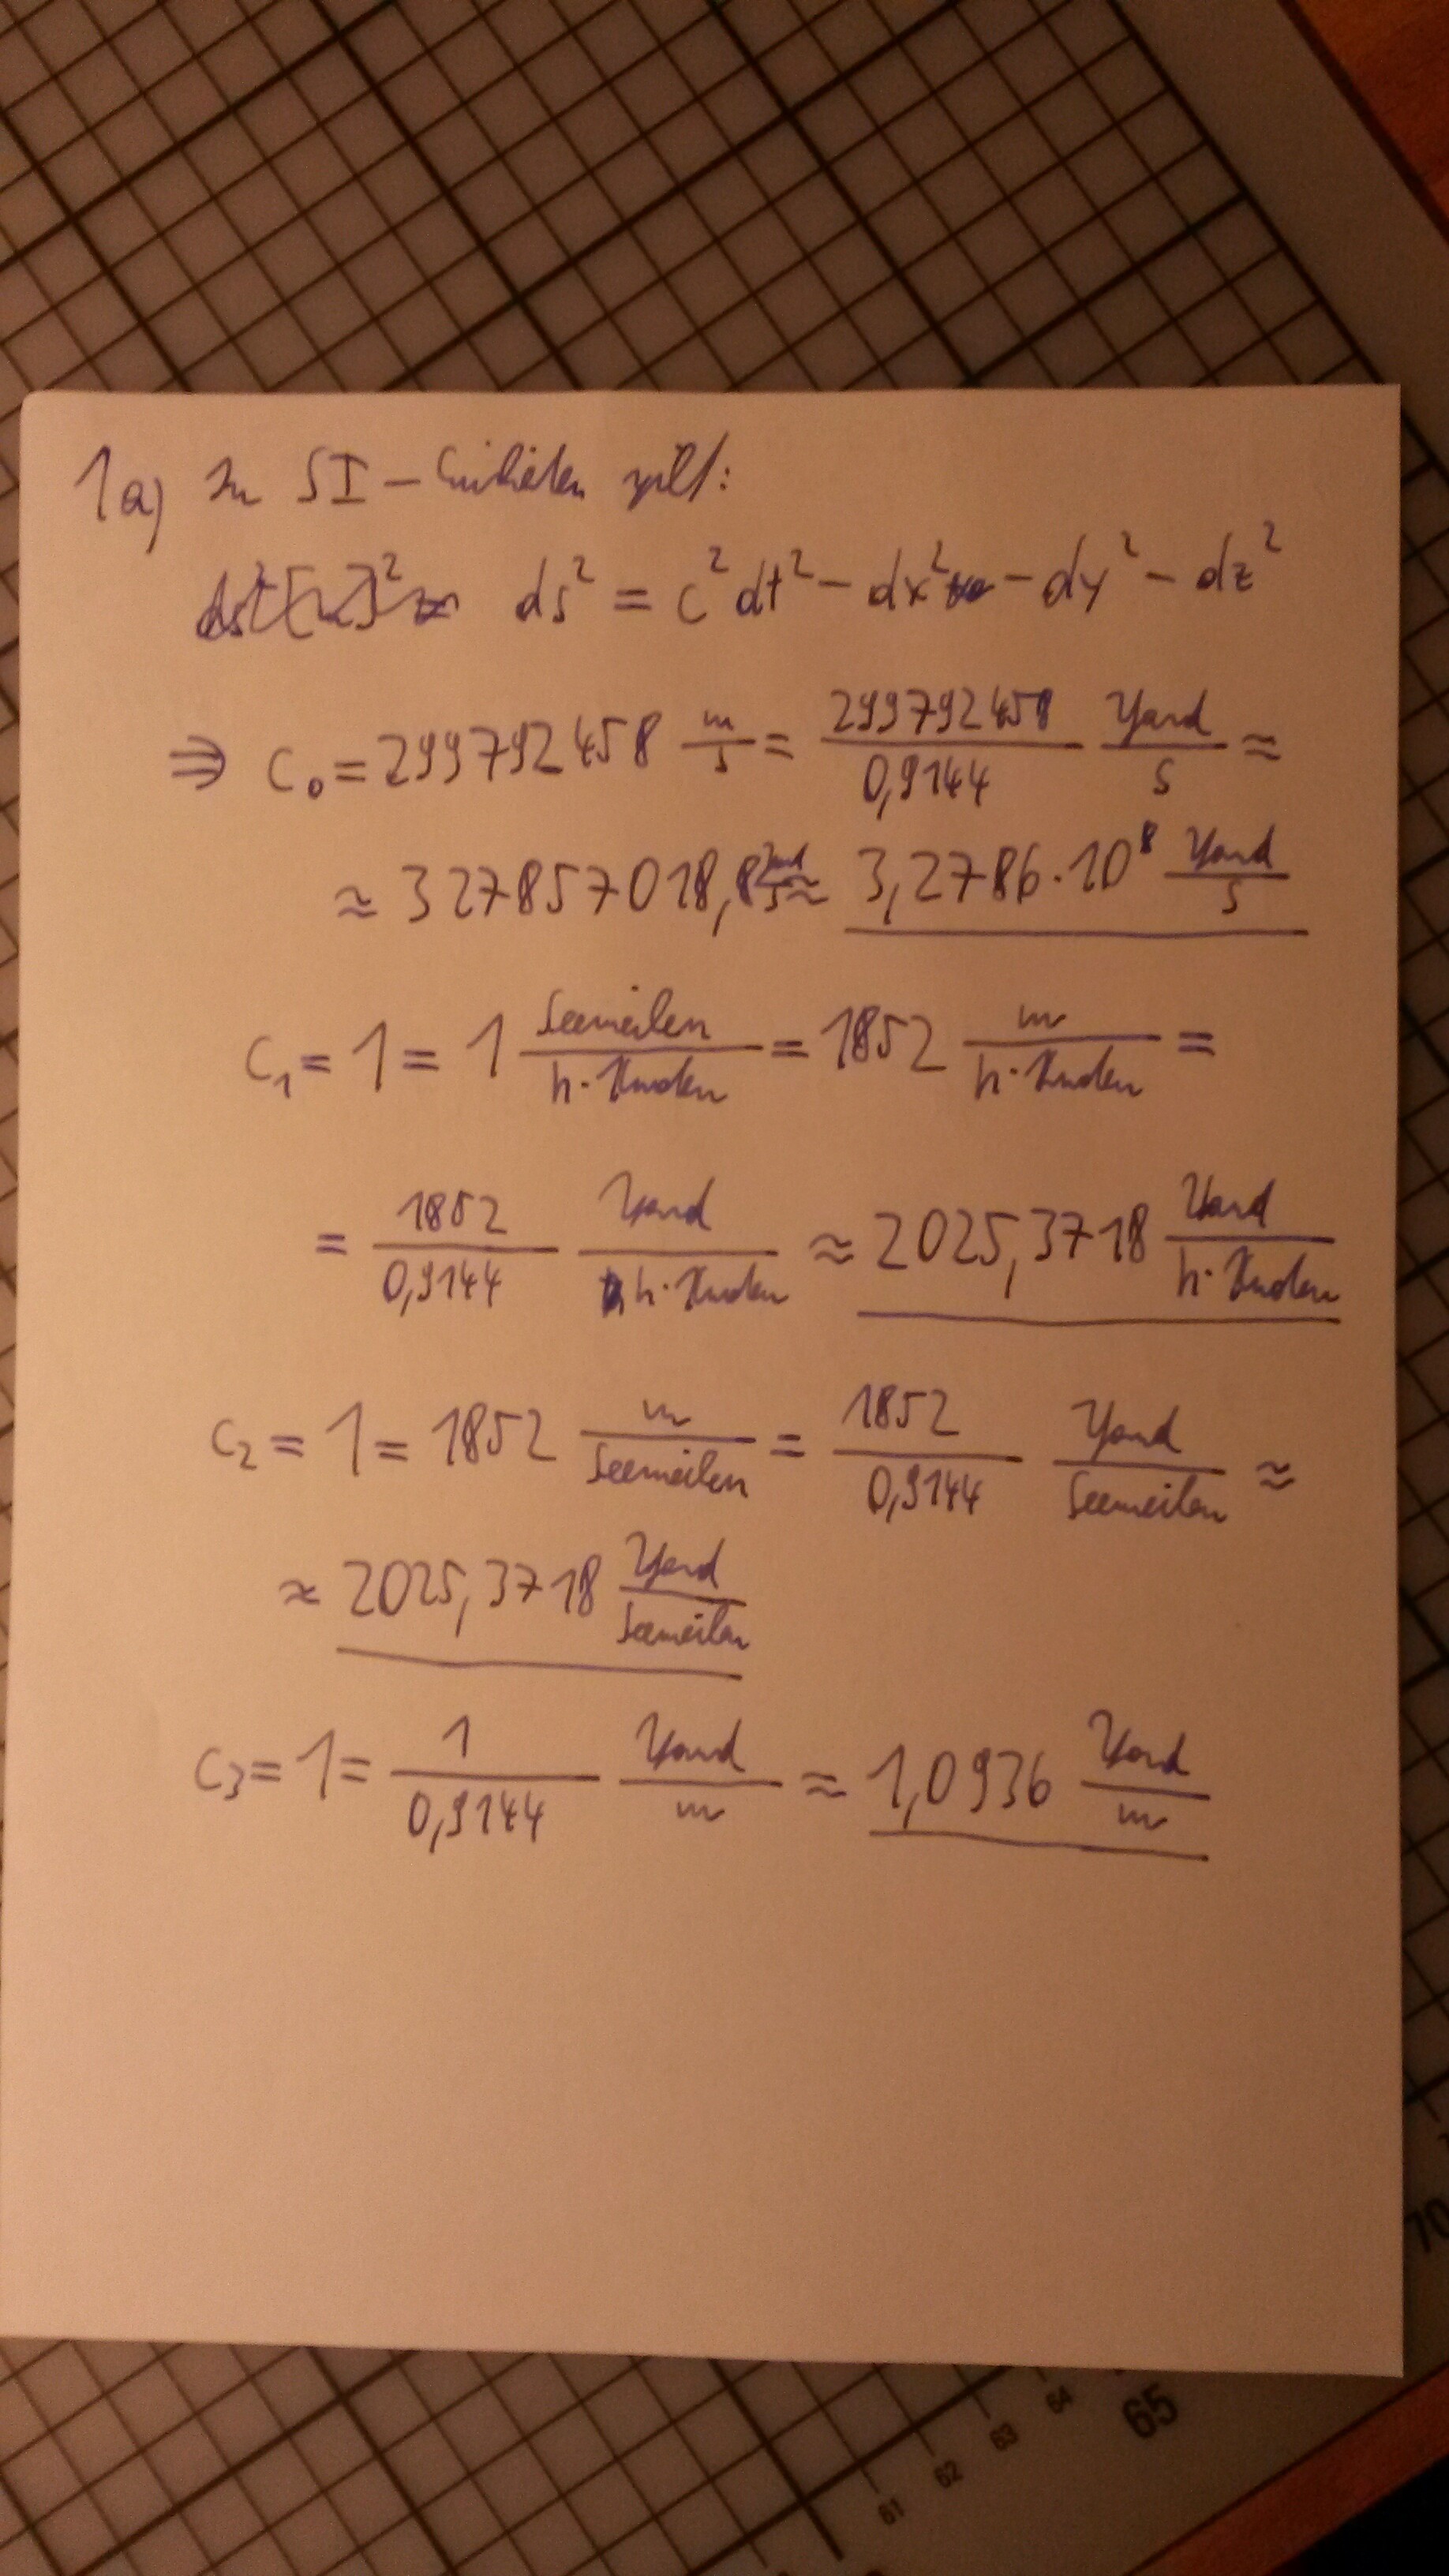 1a) In SI-Einheiten gilt:
ds² = c²dt² - dx² - dy² - dz²
⇒ c₀ = 299792458 m/s = 299792458/0,9144 Yard/s ≈
≈ 327857018,8 Yard/s ≈ 3,2786·10⁸ Yard/s
c₁ = 1 = 1 Seemeilen/h·Knoten = 1852 m/h·Knoten =
= 1852/0,9144 Yard/h·Knoten ≈ 2025,3718 Yard/h·Knoten
c₂ = 1 = 1852 m/Seemeilen = 1852/0,9144 Yard/Seemeilen ≈
≈ 2025,3718 Yard/Seemeilen
c₃ = 1 = 1/0,9144 Yard/m ≈ 1,0936 Yard/m
70
65
64
63
62
61